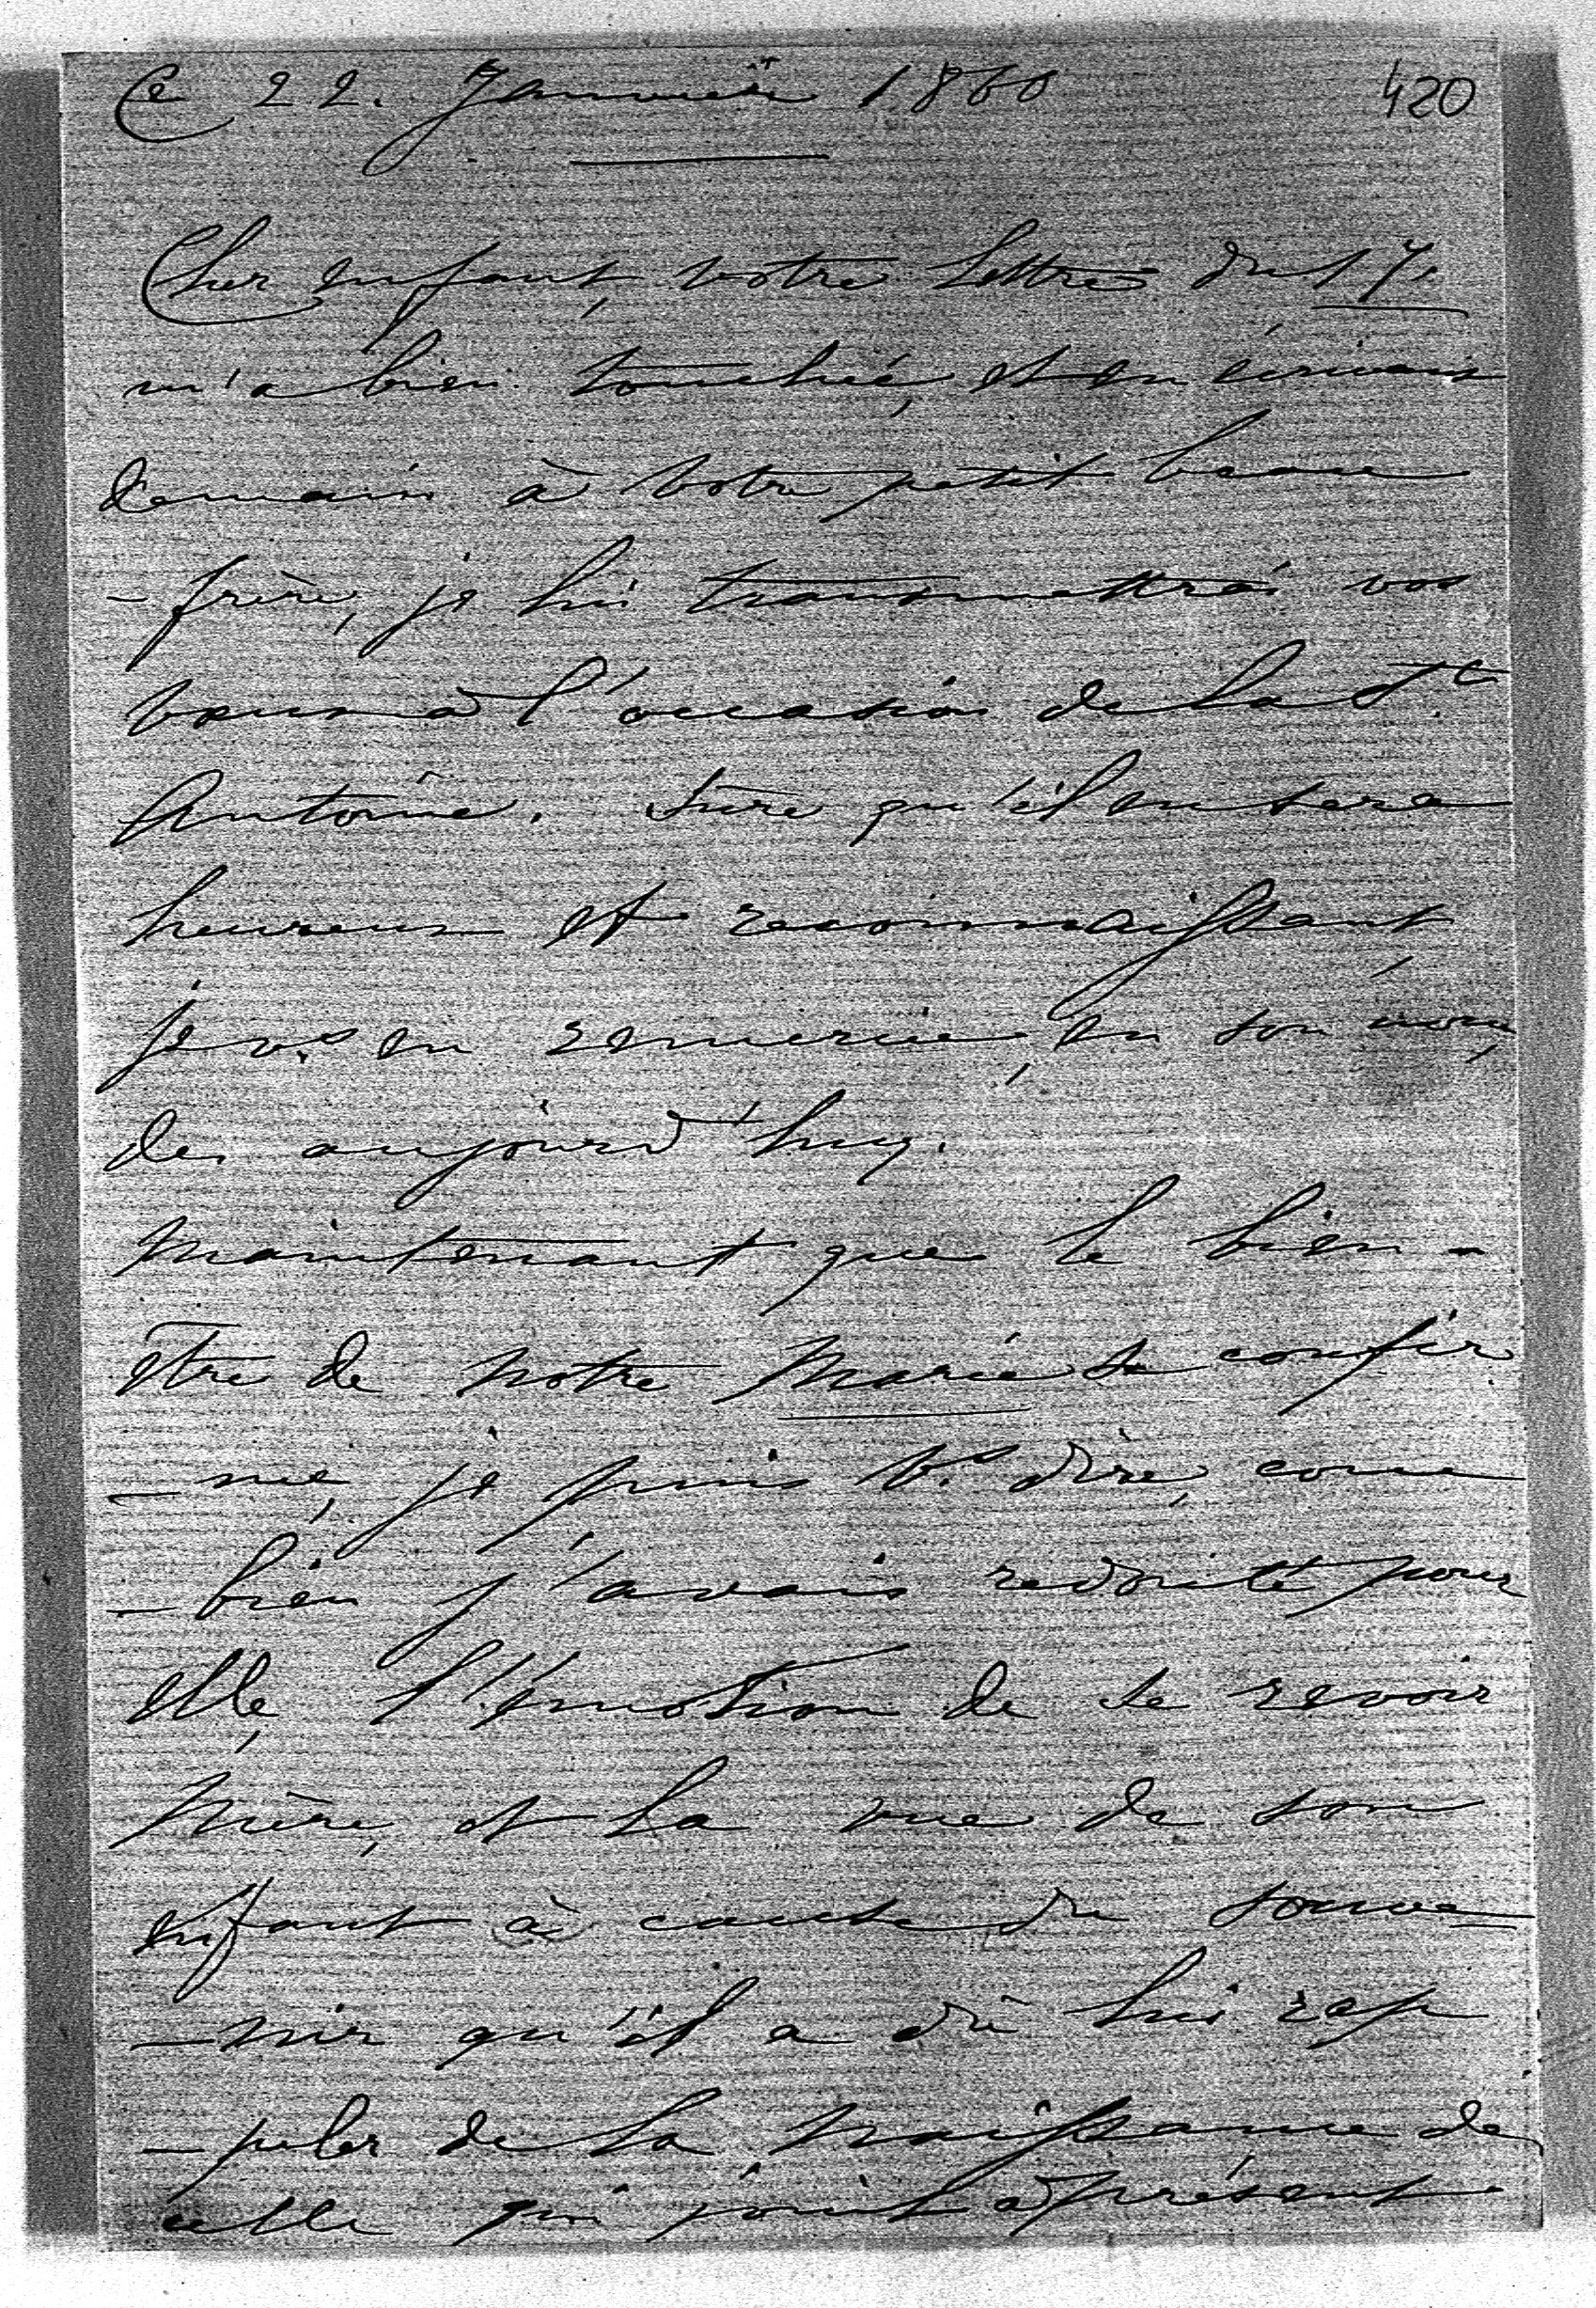 Ce 22. Janvier 1860
420
Cher enfant, votre lettre du 17.
m'a bien touchée, et en écrivant
demain à votre petit beau
-frère, je lui transmettrai vos
voeux à l'occasion de la St.
Antoine. Sûre qu'il en sera
heureux et reconnaissant
je vs. en remercie, en son nom,
des aujourd'huy.
Maintenant que le bien-
être de notre Marie se confir
-me, je puis vs. dire, com
-bien j'avais redouté pour
elle, l'émotion de se revoir
Mère, et la vue de son
enfant à cause du souve-
-nir qu'il a dû lui rap
-peler de la naissance de
celle qui jouit à présent